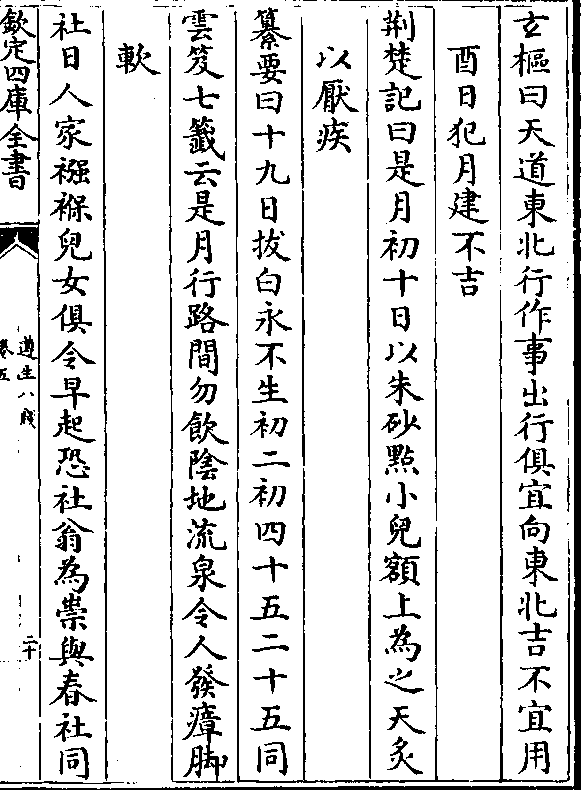 玄樞曰天道東北行作事出行俱宜向東北吉不宜用
酉日犯月建不吉
荆楚記曰是月初十日以朱砂點小兒額上為之天灸
以厭疾
纂要曰十九日拔白永不生初二初四十五二十五同
雲笈七籤云是月行路間勿飲陰地流泉令人發瘴脚
軟
社日人家襁褓兒女俱令早起恐社翁為祟與春社同
欽定四庫全書
遵生八牋
卷五
二十